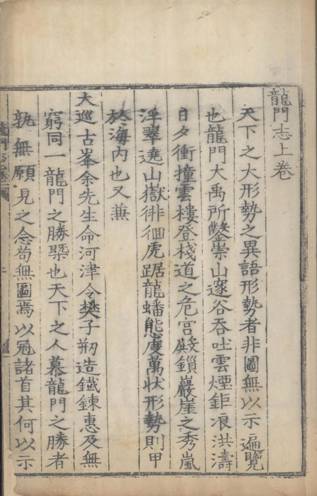 龍門志上卷
天下之大形勢之異語形勢者非圖無以示遍覽
也龍門大禹所鑿崇山邃谷吞吐雲煙鉅浪洪濤
日夕衝撞雲樓登棧道之危宮殿鎖巖崖之秀嵐
浮翠遶山嶽徘徊虎踞龍蟠態度萬狀形勢則甲
於海內也又兼
大巡古峯余先生命河津令樊子刱造鐵鍊惠及無
窮同一龍門之勝槩也天下之人慕龍門之勝者
孰無願見之念苟無圖焉以冠諸首其何以示